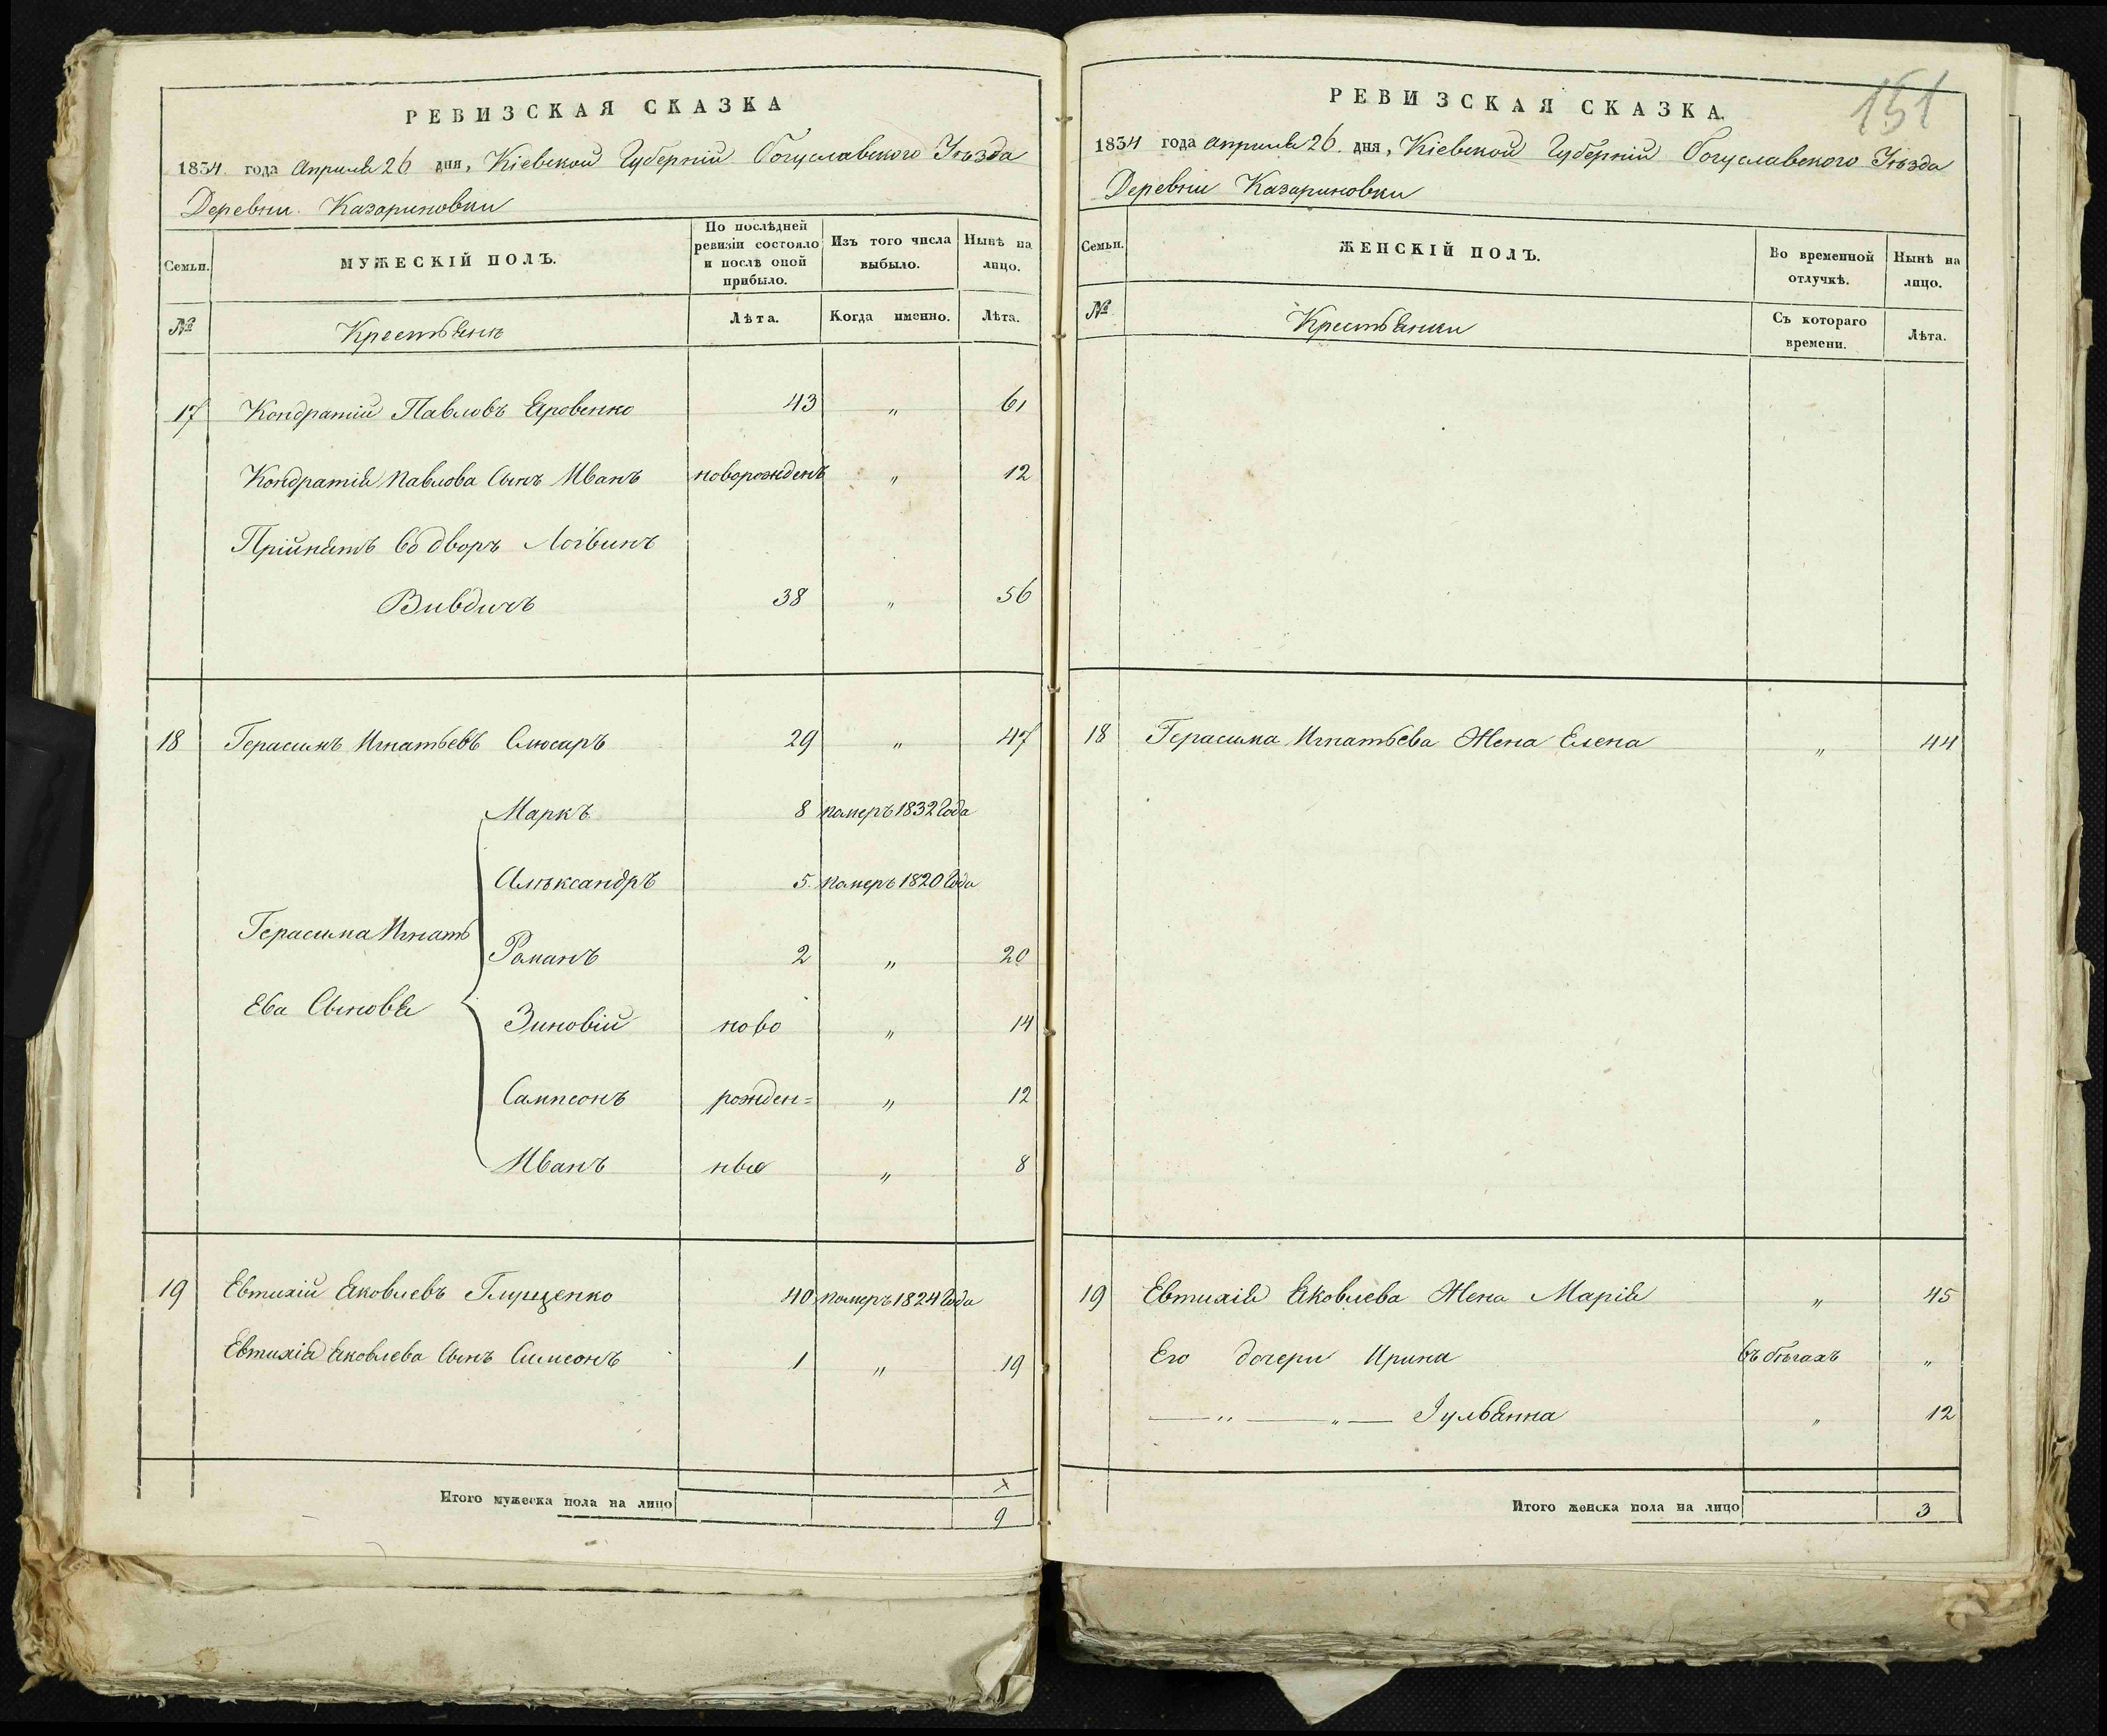 РЕВИЗСКАЯ СКАЗКА
1834 года Апрѣля 26 дня, Кіевской Губерніи Богуславского Уѣзда
Деревни Казариновки
Семьи.
МУЖЕСКІЙ ПОЛЪ.
По послѣдней ревизіи состояло и послѣ оной прибыло.
Изъ того числа выбыло.
Нынѣ на лицо.
№
Крестьянъ
Лѣта.
Когда именно.
Лѣта.
17 Кондратій Павловъ Яровенко 43 „ 61
Кондратія Павлова Сынъ Иванъ новорожденъ „ 12
Прійнятъ во дворъ Логвинъ
38 „ 56
18 Герасимъ Игнатьевъ Слюсаръ 29 „ 47
Маркъ 8 померъ 1832 Года
Алѣксандръ 5 померъ 1820 Года
Герасима Игнать
Романъ 2 „ 20
Ева Сыновья
Зиновій ново „ 14
Сампсонъ рожден= „ 12
Иванъ ные „ 8
19 Евтихій Яковлевъ 40 померъ 1824 Года
Евтихія Яковлева Сынъ Симеонъ 1 „ 19
Итого мужеска пола на лицо 9
РЕВИЗСКАЯ СКАЗКА.
151
1834 года апрѣля 26 дня, Кіевской Губерніи Богуславского Уѣзда
Деревни Казариновки
Семьи.
ЖЕНСКІЙ ПОЛЪ.
Во временной отлучкѣ.
Нынѣ на лицо.
№
Крестьянки
Съ котораго времени.
Лѣта.
18 Герасима Игнатьева Жена Елена „ 44
19 Евтихія Яковлева Жена Марія „ 45
Его дочери Ирина въ бѣгахъ „
— „ — „ — Іульянна „ 12
Итого женска пола на лицо 3